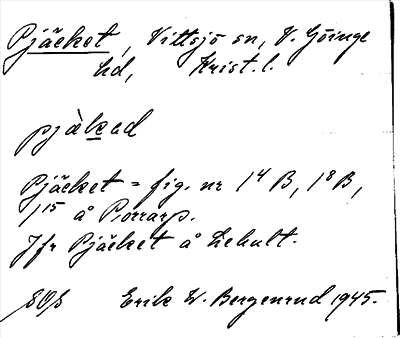 Pjäcket, Vittsjö sn, V. Göinge
hd, Krist. l.
pjäkad
Pjäcket = fig. nr 1⁴ B, 1⁸ B,
1¹⁵ å Porrarp.
Jfr Pjäcket å Lehult.
Erik W. Bergenrud 1945.